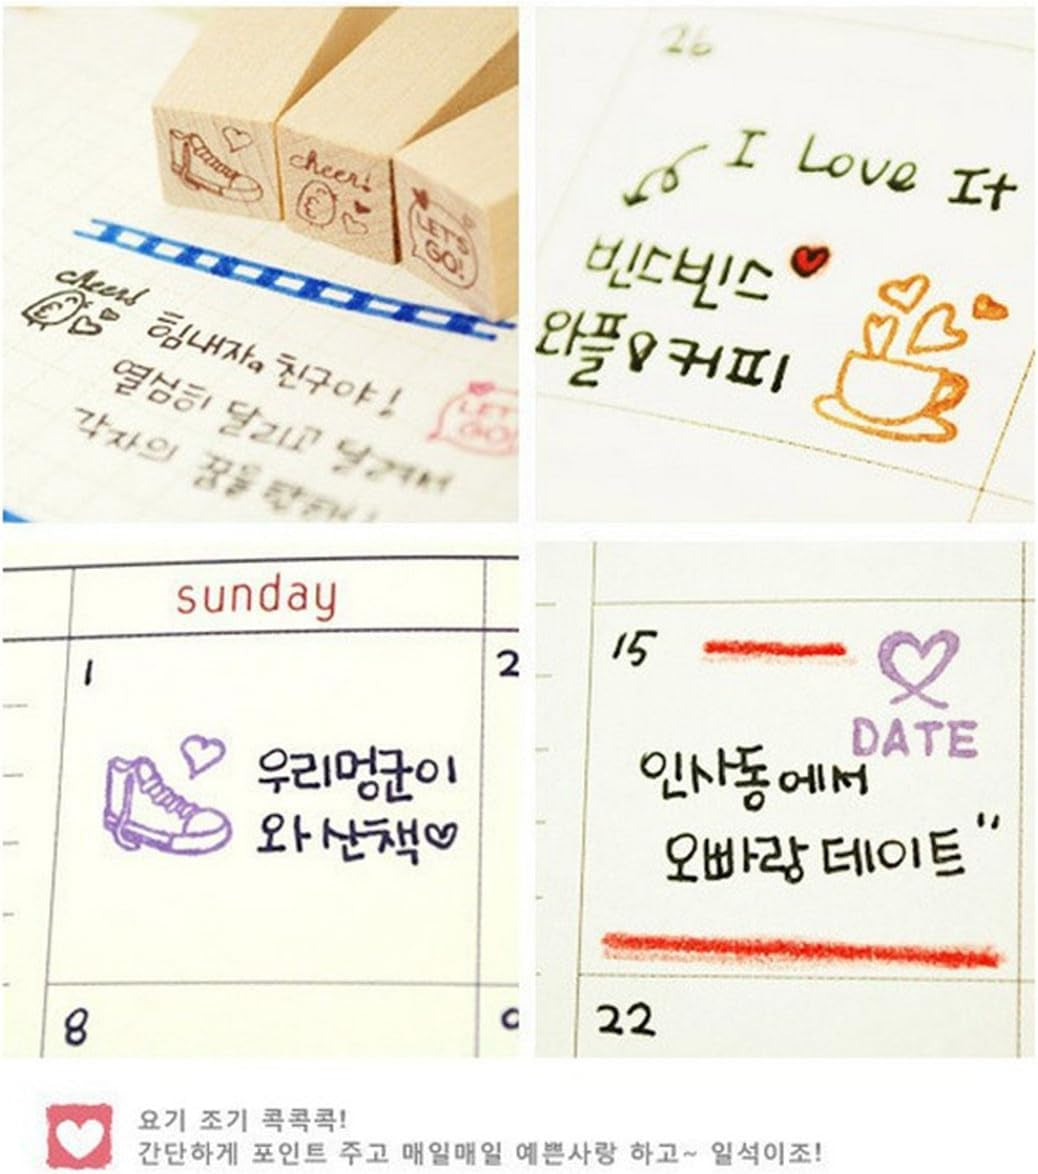 cheer!
LET'S
GO!
cheer!
힘내자. 친구야!
열심히 달리고 달려서
각자의 꿈을
LET'S
GO!
26
I Love It
빈스빈스
와플&커피
sunday
1
2
우리멍군이
와 산책
8
15
DATE
인사동에서
오빠랑 데이트"
22
요기 조기 콕콕콕!
간단하게 포인트 주고 매일매일 예쁜사랑 하고~ 일석이조!